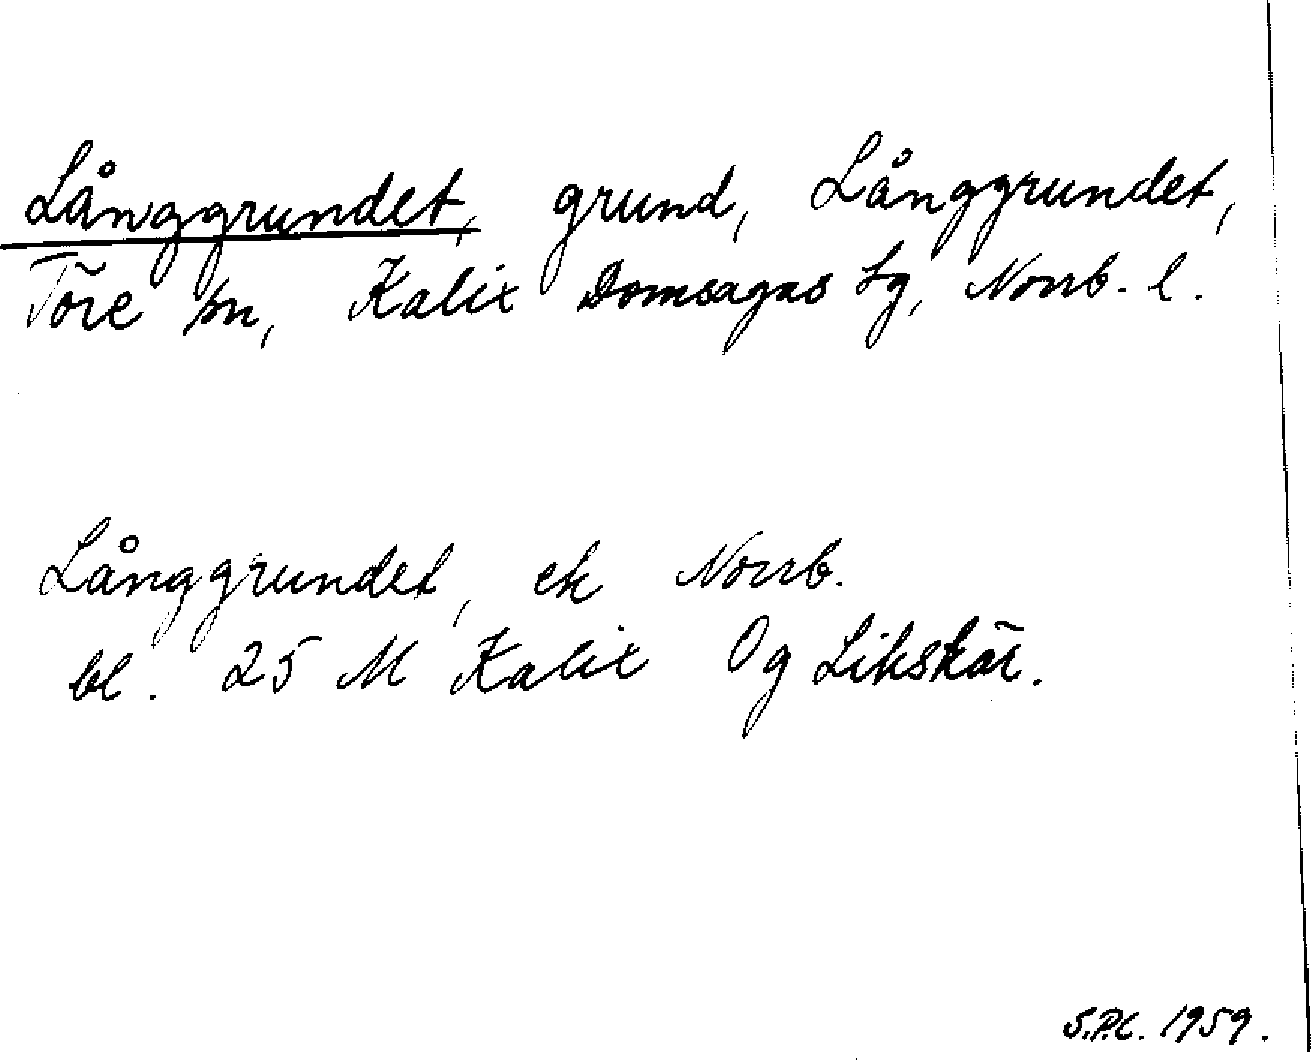 Långgrundet, grund, Långgrundet,
Töre sn, Kalix Domsagas tg, Norrb. l.
Långgrundet, ek Norrb.
bl. 25 M Kalix Og Likskär.
S.P.C. 1959.